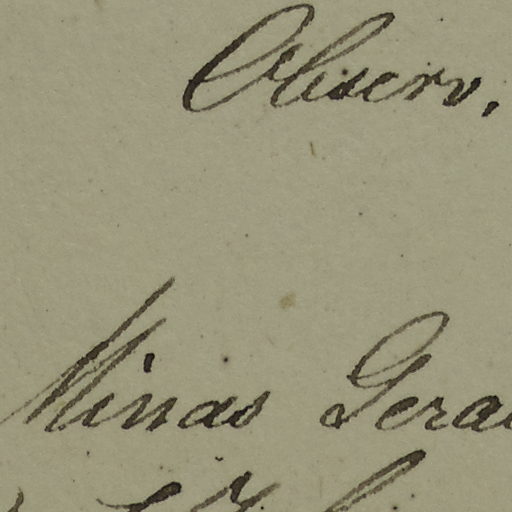 Observ.
Minas Gerae